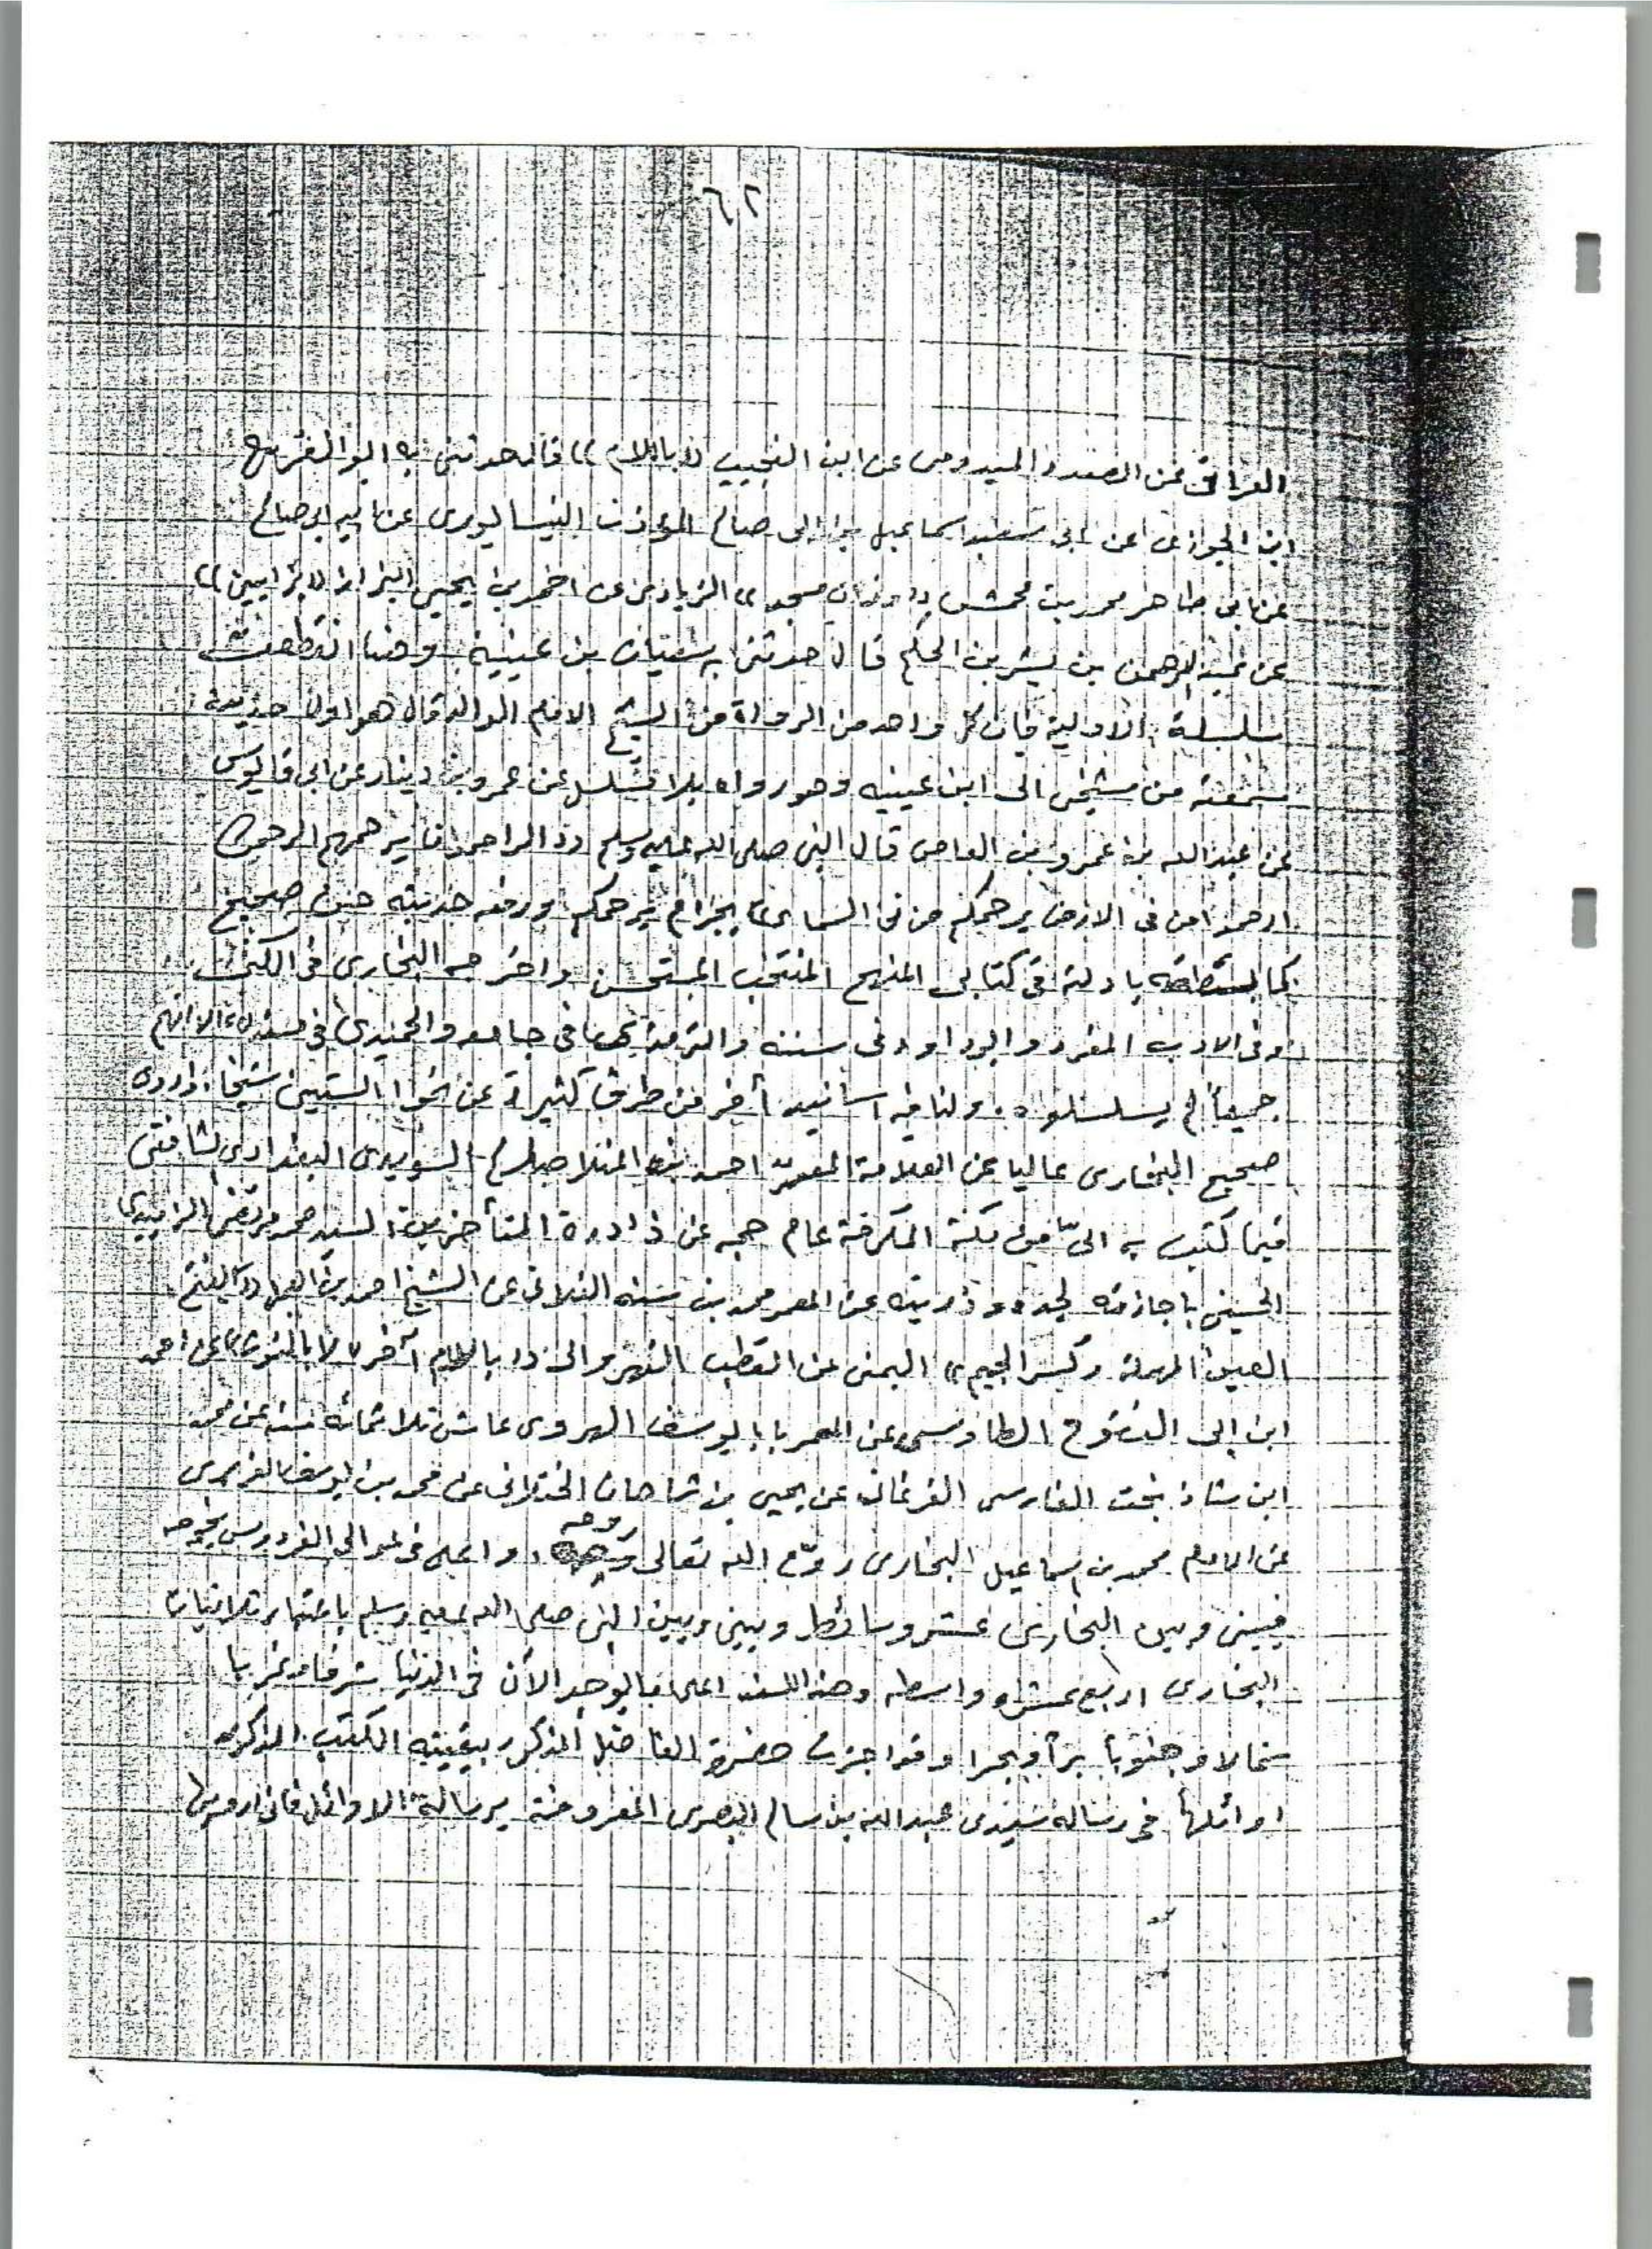 ٦٢
العراقي عن الصدر الميدومي عن ابن النجيب ((باللام)) قال حدثني به ابو الفرج
ابن الجوزي عن ابى سعيد اسماعيل بن ابى صالح المؤذن النيسابوري عن ابيه ابى صالح
عن ابى طاهر محمد بن محمش ((وزان مسجد)) الزيادى عن احمد بن يحيى البزاز ((بزايين))
عن عبد الرحمن بن بشر بن الحكم قال حدثنى به سفيان بن عيينة وهنا انقطعت
سلسلة الاولية فان كل واحد من الرواة من الشيخ الامام الوالد قال هو اول حديث
سمعته من شيخى الى ابن عيينه وهو رواه بلا تسلسل عن عمرو بن دينار عن ابى قابوس
عن عبد الله بن عمرو بن العاص قال النبى صلى الله عليه وسلم ((الراحمون يرحمهم الرحمن
ارحموا من فى الارض يرحمكم من فى السماء)) بجزم يرحمكم ورفعه حديث حسن صحيح
كما بسطته بادلته فى كتابى المنهج المنتخب المستحسن واخرجه البخارى فى الكنى
وفى الادب المفرد وابو داود فى سننه والترمذى فى جامعه والحميدى فى مسنده الا انهم
جميعاً لم يسلسلوه. ولنا فيه اسانيد أخر من طرق كثيرة عن نحو الستين شيخا. واروى
صحيح البخارى عاليا عن العلامة المعمر احمد بن المنلا صالح السويدى البغدادى الشافعى
فيما كتب به الىّ من مكة المكرمة عام حجه عن نادرة المتأخرين السيد محمد مرتضى الزبيدى
الحسينى باجازته لجده وذريته عن المعمر محمد بن سنه الفلانى عن الشيخ احمد بن العجل ((بفتح
العين المهملة وكسر الجيم)) اليمنى عن القطب النهروالى ((باللام آخر لا بالنون)) عن احمد
ابن ابى الفتوح الطاوسى عن المعمر بابا يوسف الهروى عاش ثلاثمائة سنه عن محمد
ابن شاذ بخت الفارسى الفرغانى عن يحيى بن شاهان الختلانى عن محمد بن يوسف الفربرى
عن الامام محمد بن اسماعيل البخارى روّح الله تعالى روحه وا فى عوالى الفردوس
فبينى وبين البخارى عشر وسائط وبينى وبين النبى صلى الله عليه وسلم باعتبار ثلاثيات
البخارى اربع عشره واسطه وهذا السند اعلى ما يوجد الآن فى الدنيا شرقا وغربا
شمالا وجنوباً براً وبحرا وقد اجزت حضرة الفاضل المذكور ببقية الكتب المذكوره
اوائلها فى رساله سيدى عبد الله بن سالم البصرى المعروفة برسالة الاوائل فانى ارويها